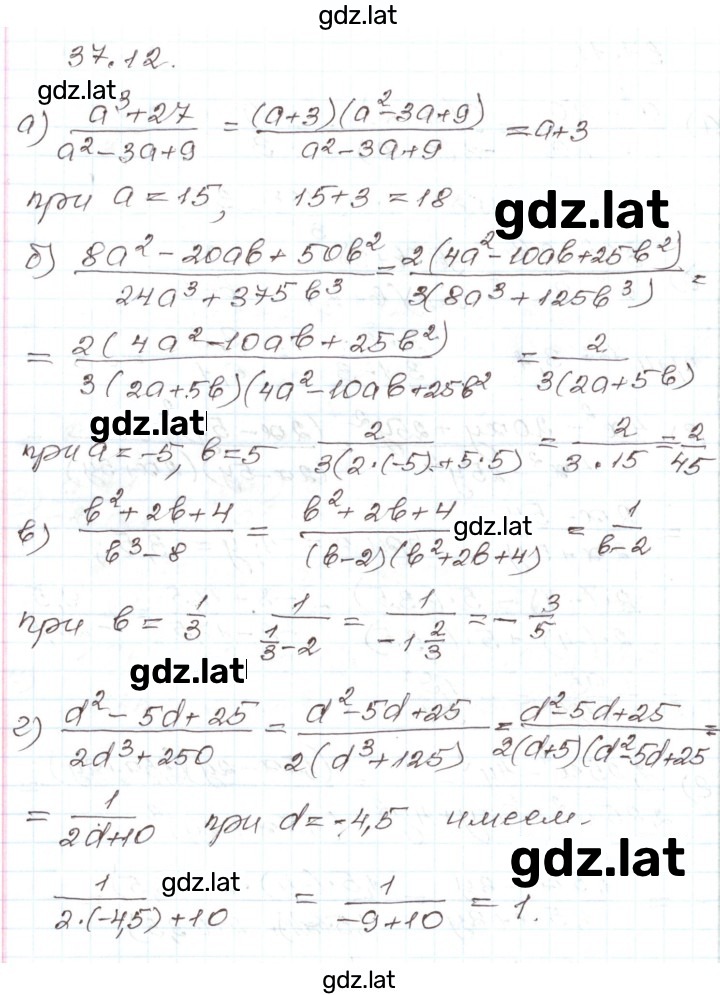 gdz.lat
37.12.
gdz.lat
а) (a³+27)/(a²-3a+9) = ((a+3)(a²-3a+9))/(a²-3a+9) = a+3
при a = 15, 15+3 = 18
gdz.lat
б) (8a²-20ab+50b²)/(24a³+375b³) = (2(4a²-10ab+25b²))/(3(8a³+125b³)) =
= (2(4a²-10ab+25b²))/(3(2a+5b)(4a²-10ab+25b²) = 2/(3(2a+5b))
gdz.lat
при a = -5, b = 5 2/(3(2·(-5)+5·5)) = 2/(3·15) = 2/45
в) (b²+2b+4)/(b³-8) = (b²+2b+4)/((b-2)(b²+2b+4)) = 1/(b-2)
gdz.lat
при b = 1/3 1/(1/3-2) = 1/(-1 2/3) = -3/5
gdz.lat
г) (d²-5d+25)/(2d³+250) = (d²-5d+25)/(2(d³+125)) = (d²-5d+25)/(2(d+5)(d²-5d+25) =
= 1/(2d+10) при d = -4,5 имеем.
gdz.lat
1/(2·(-4,5)+10) = 1/(-9+10) = 1.
gdz.lat
gdz.lat